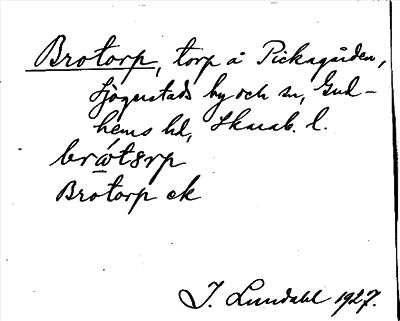 Brotorp, torp å Pickagården,
Sjogerstads by och sn, Gud-
hems hd, Skarab. l.
brótorp
Brotorp ek
I. Lundahl 1927.